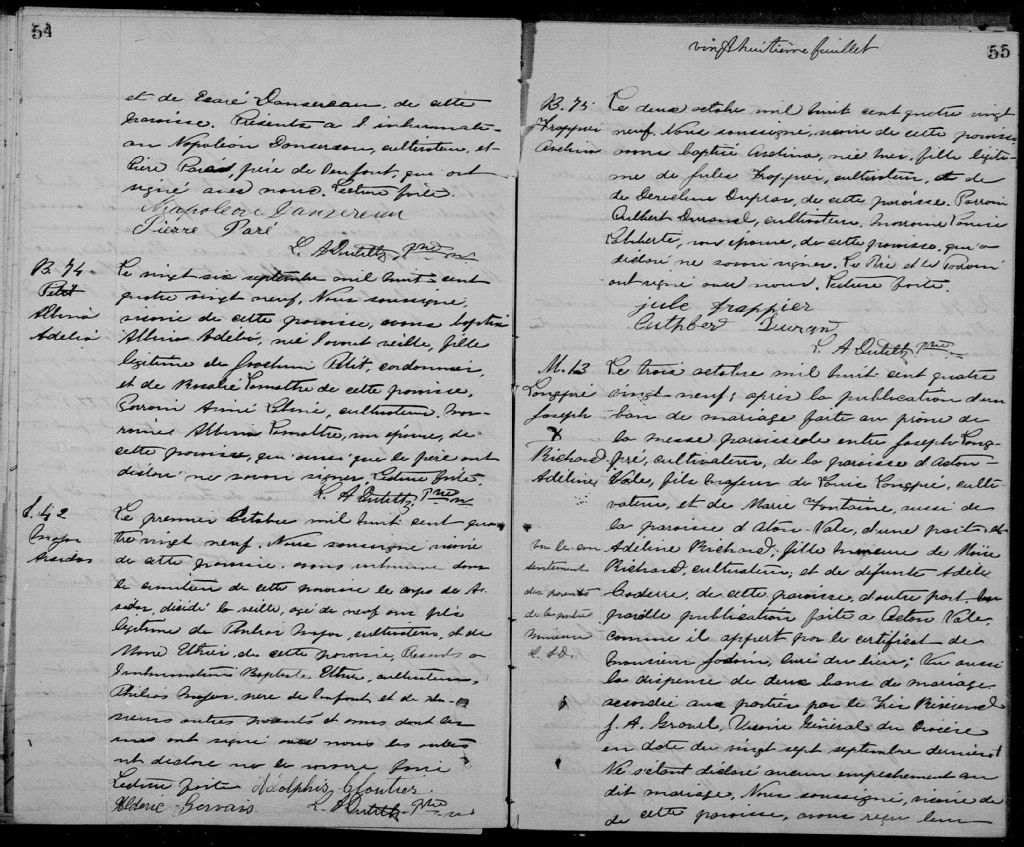 54
et de Esaré Dansereau, de cette
paroisse. Présents a l'inhumati-
on Napoléon Dansereau, cultivateur, et
Pierre Paré, père de l'enfant, qui ont
signé avec nous. Lecture faite.
Napoleon Dansereau
Pierre Paré
L. A. Dutilly ptre
B. 74
Petit
Albina
Adelia
Le vingt six septembre mil huit cent
quatre vingt neuf, Nous soussigné,
vicaire de cette paroisse, avons baptisé
Albina Adélia, née l'avant veille, fille
légitime de Joachim Petit, cordonnier,
et de Rosalie Lemaître de cette paroisse,
Parrain Aimé, cultivateur, mar-
raine Albina Lemaître, son épouse, de
cette paroisse, qui ainsi que le père ont
déclaré ne savoir signer. Lecture faite.
L. A. Dutilly ptre
S. 42
Major
Le premier Octobre mil huit cent qua
tre vingt neuf. Nous soussigné vicaire
de cette paroisse, avons inhumé dans
le cimetière de cette paroisse le corps de
décédé la veille, agé de neuf ans fils
légitime de Major, cultivateur, et de
de cette paroisse, Présents a
l'inhumation Baptiste, cultivateur,
Major, père de l'enfant et de plu-
sieurs autres parents et amis dont les
uns ont signé avec nous les autres
ont déclaré ne le savoir faire
Lecture faite Adolphis Cloutier
Gervais L. A. Dutilly ptre
vingt huitieme feuillet
55
B. 75
Frappier
Le deux octobre mil huit cent quatre vingt
neuf. Nous soussigné, vicaire de cette paroisse
avons baptisé, née hier, fille légiti-
me de Jules Frappier, cultivateur, et de
de cette paroisse. Parrain
Cuthbert Durand, cultivateur, marraine Louise
Laliberté, son épouse, de cette paroisse, qui a
déclaré ne savoir signer. Le Père et le Parrain
ont signé avec nous. Lecture faite.
jule frappier
Cuthberd Durand
L. A. Dutilly ptre
M. 13
Longpré
Joseph
X
Richard
Adéline
Le trois octobre mil huit cent quatre
vingt neuf; après la publication d'un
ban de mariage faite au prône de
la messe paroissiale entre Joseph Long-
pré, cultivateur, de la paroisse d'Acton-
Vale, fils majeur de Louis Longpré, culti-
vateur, et de Marie Fontaine, aussi de
la paroisse d'Acton-Vale, d'une part; et
Adéline Richard, fille mineure de Moïse
Richard, cultivateur, et de défunte Adèle
Coderre, de cette paroisse, d'autre part,
pareille publication faite a Acton Vale,
comme il appert par le certificat de
Monsieur Jodoin, curé du lieu; Vu aussi
la dispense de deux bans de mariage
accordée aux parties par le Très Révérend
J. A. Gravel, Vicaire Général du Diocèse
en date du vingt sept septembre dernier!
Ne s'étant déclaré aucun empêchement au
dit mariage, Nous soussigné, vicaire de
de cette paroisse, avons reçu leur
Vu le con
sentement
des parents
de la partie
mineure
L. A. D.